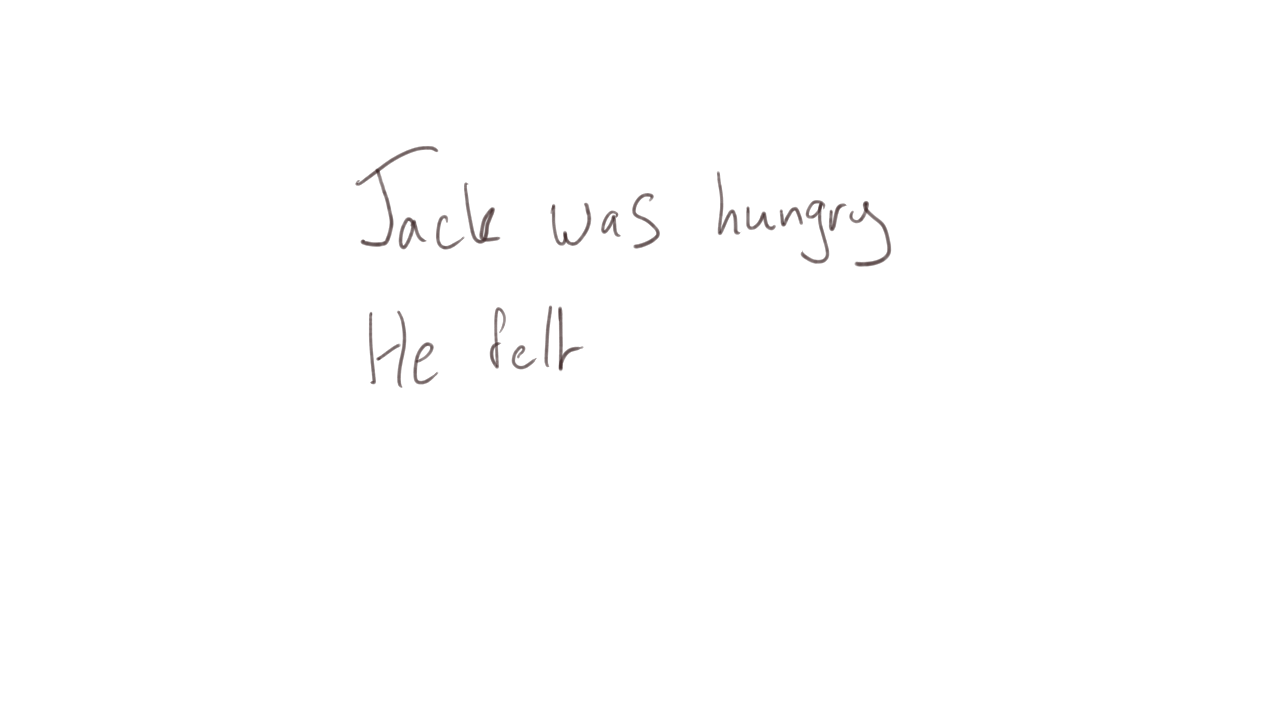 Jack was hungry
He felt